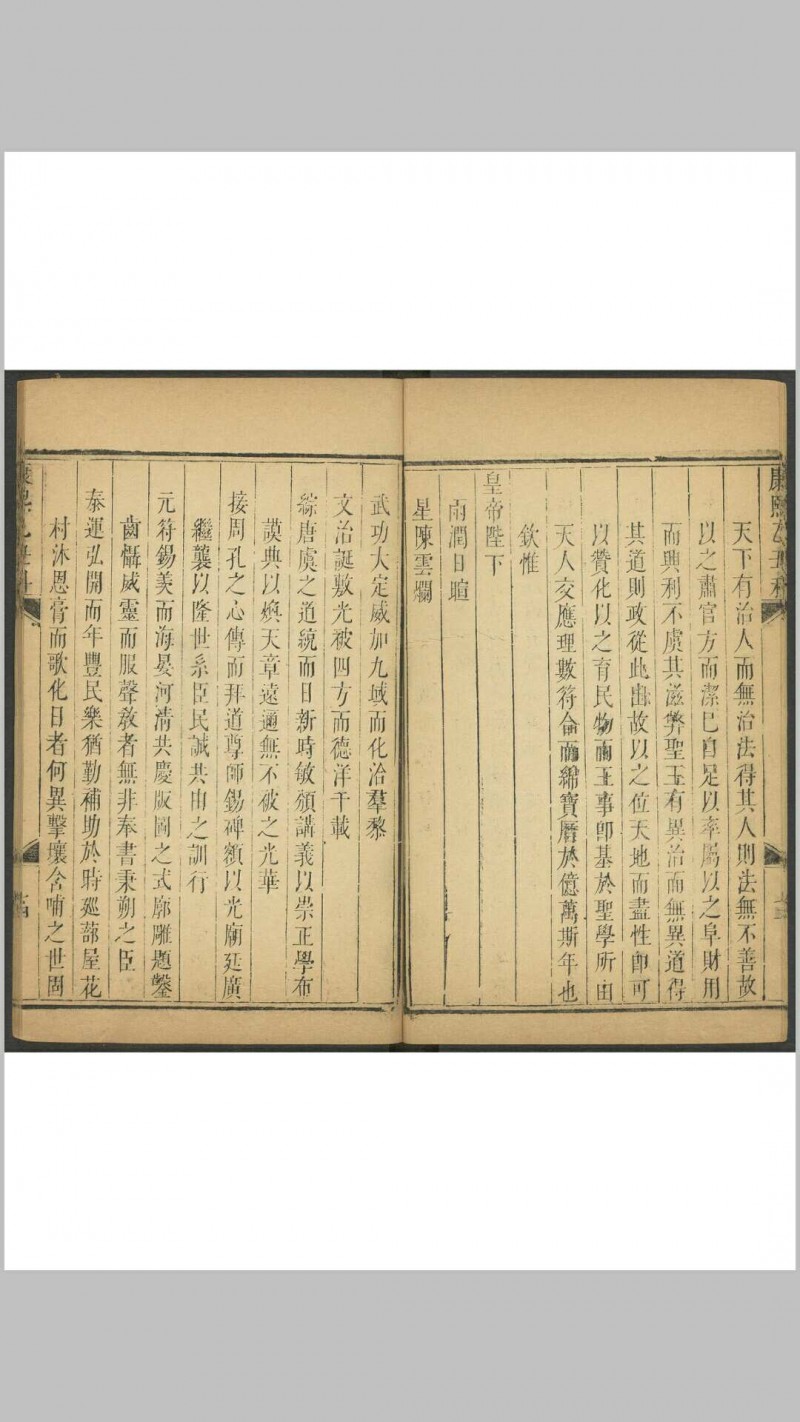 天下有治人而無治法得其人則法無不善故
以之肅官方而潔已自足以率屬以之阜財用
而興利不虞其滋弊聖王有異治而無異道得
其道則政從此出故以之位天地而盡性卽可
以贊化以之育民物而王事卽基於聖學所由
天人交應理數符合而綿寶曆於億萬斯年也
欽惟
皇帝陛下
雨潤日暄
星陳雲爛
武功大定威加九域而化洽羣黎
文治誕敷光被四方而德洋千載
綜唐虞之道統而日新時敏頒講義以崇正學布
謨典以煥天章遠邇無不被之光華
接周孔之心傳而拜道尊師錫碑額以光廟廷廣
繼襲以隆世系臣民誠共由之訓行
元符錫美而海晏河淸共慶版圖之式廓雕題鑿
齒慴威靈而服聲敎者無非奉書秉朔之臣
泰運弘開而年豐民樂猶勤補助於時廵蔀屋花
村沐恩膏而歌化日者何異擊壤含哺之世固